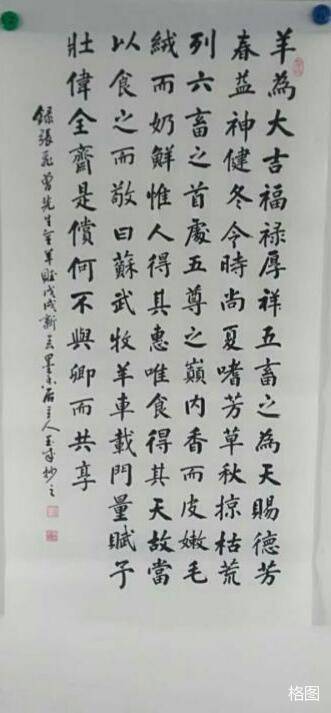 羊為大吉福禄厚祥五畜之為天賜德芳
春益神健冬令時尚夏嗜芳草秋掠枯荒
列六畜之首處五尊之巔内香而皮嫩毛
絨而奶鮮惟人得其惠唯食得其天故當
以食之而敬曰蘇武牧羊車載門量賦予
壯偉全齋是償何不與卿而共享
錄張曾先生羊賦戊戌新主人玉抄之
格图